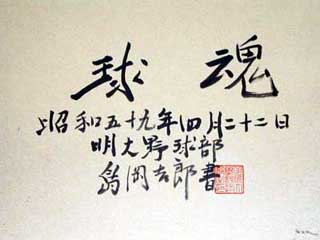 球魂
昭和五十九年四月二十二日
明大野球部
島岡吉郎書